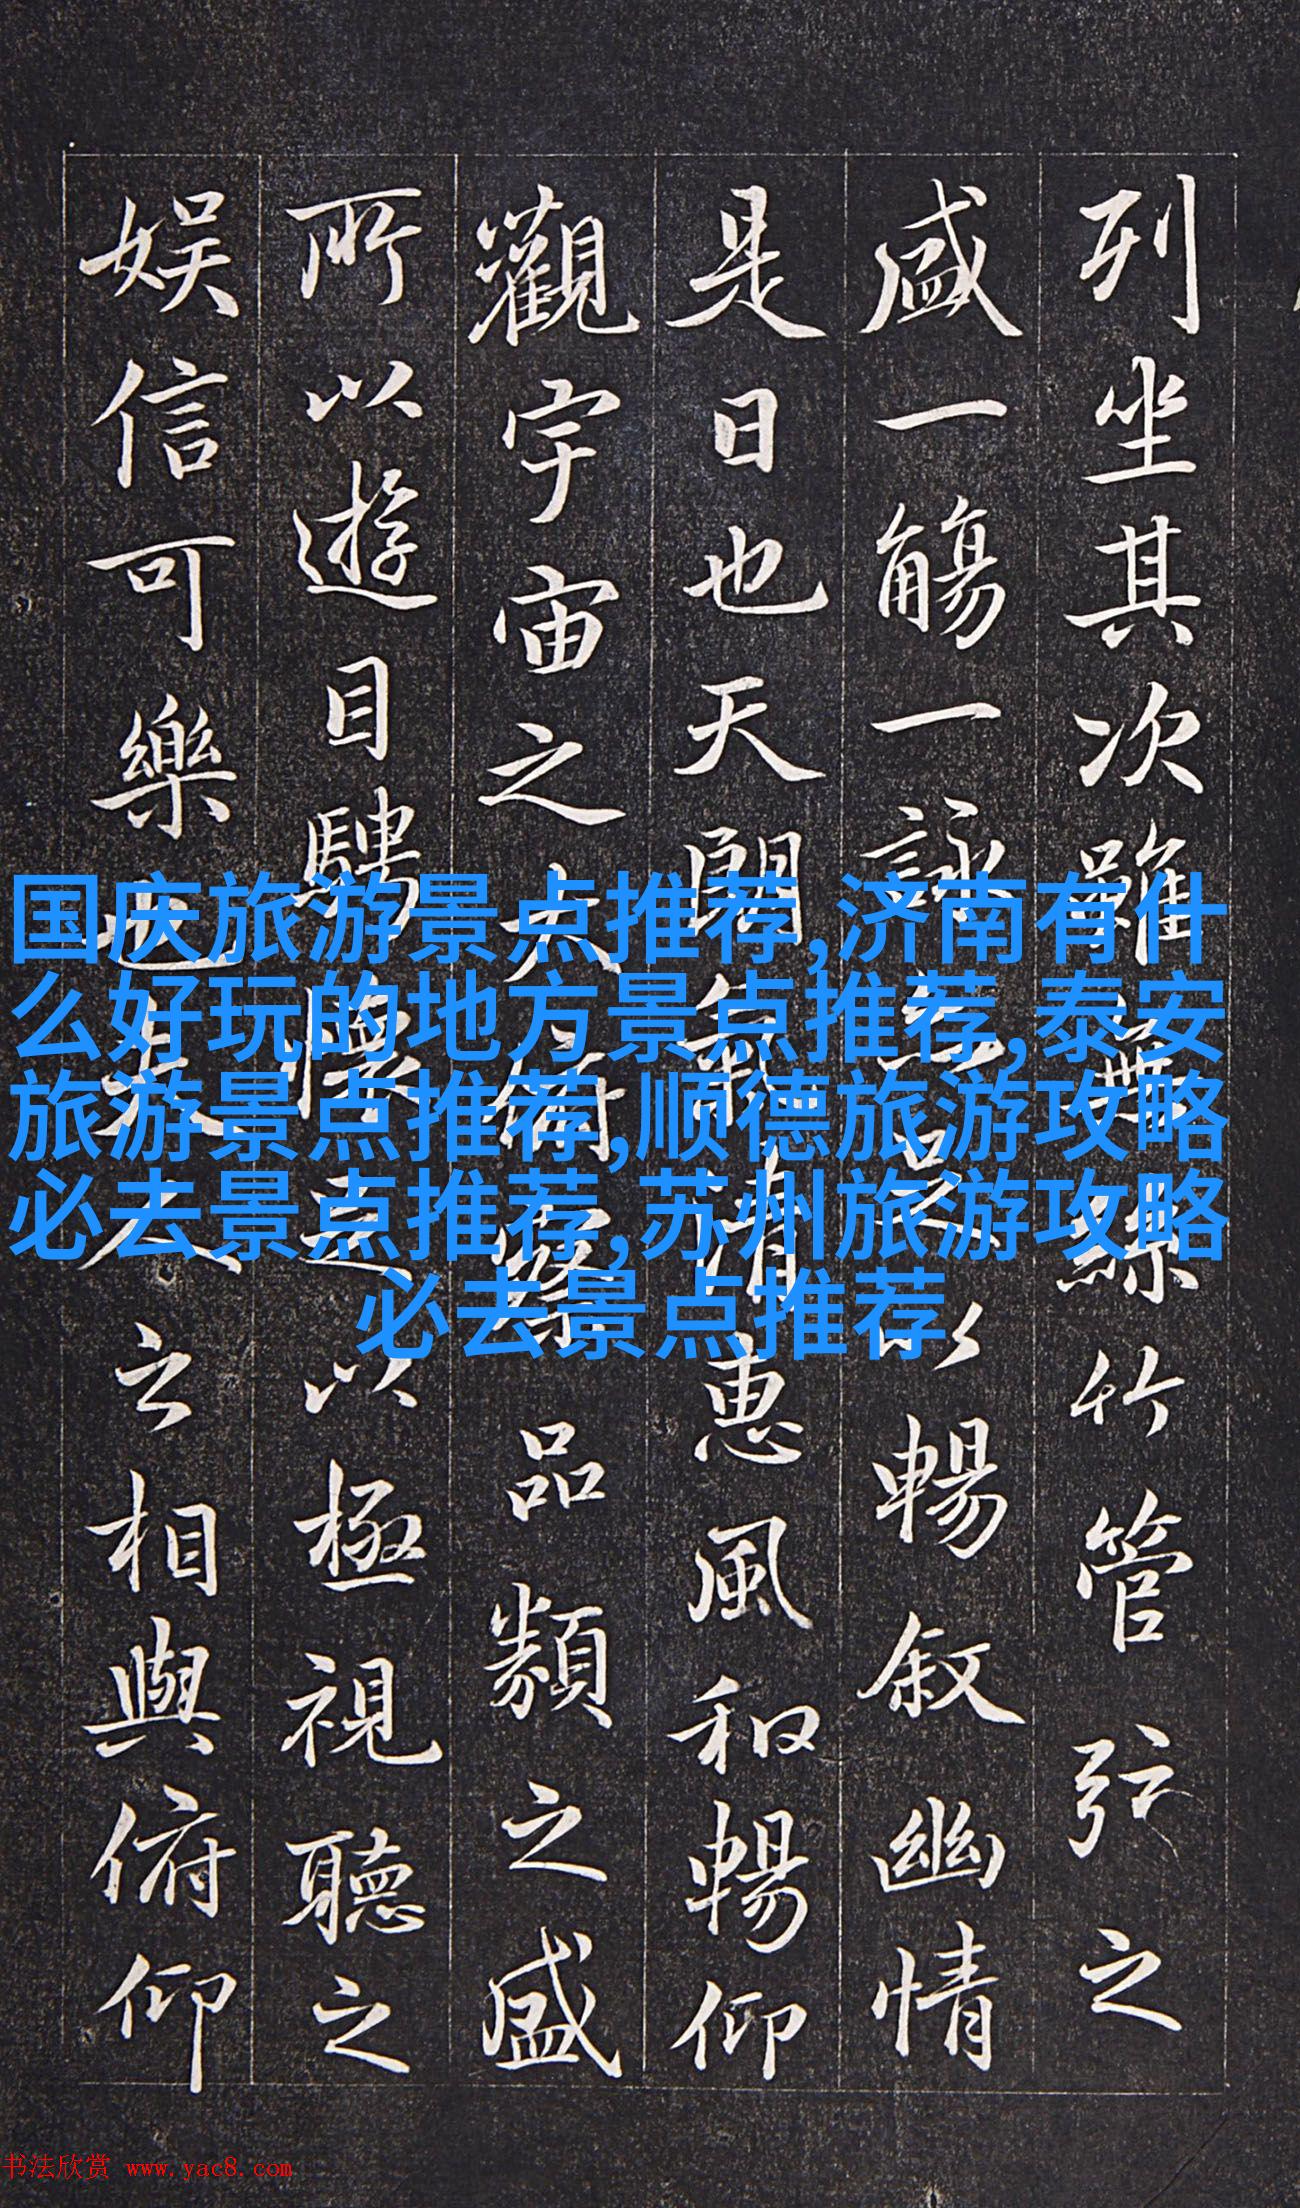 列坐其次雖無絲竹管弦之
盛一觴一詠亦足以暢叙幽情
是日也天閬氣清惠風和暢仰
觀宇宙之大俯察品類之盛
所以遊目騁懷足以極視聽之
娱信可樂也夫人之相與俯仰
国庆旅游景点推荐,济南有什
么好玩的地方景点推荐,泰安
旅游景点推荐,顺德旅游攻略
必去景点推荐,苏州旅游攻略
必去景点推荐
书法欣赏 www.yac8.com